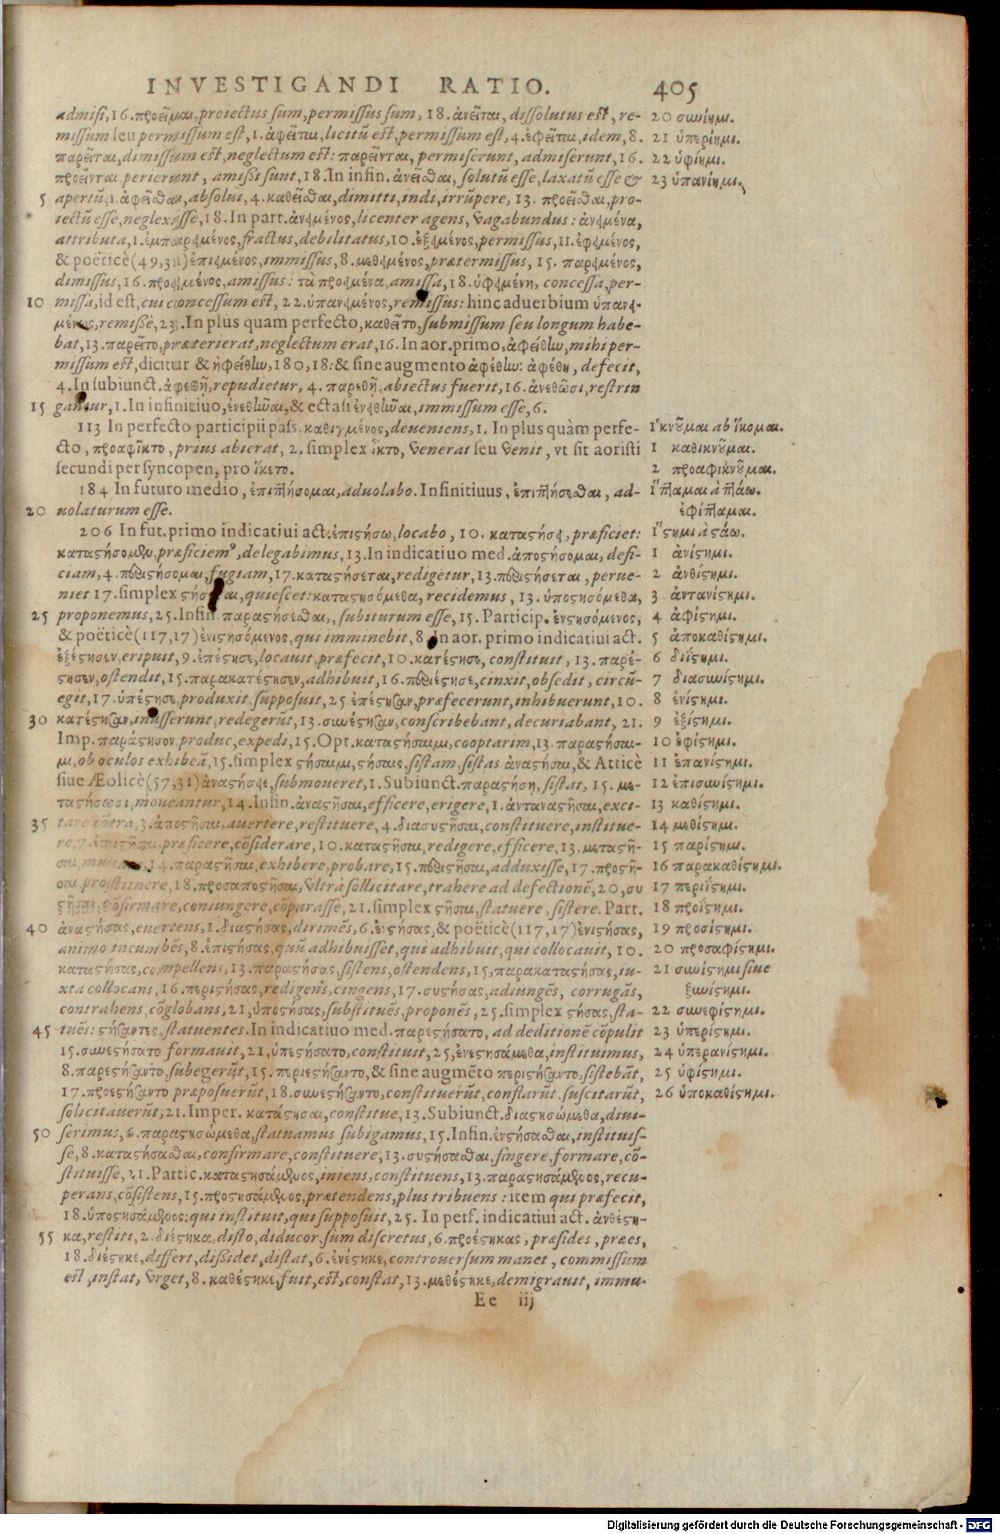 INVESTIGANDI RATIO. 405
admisi, 16. προεῖμαι, proiectus sum, permissus sum, 18. ἀνεῖται, dissolutus est, re-
missum seu permissum est, 1. ἀφεῖται, licitũ est, permissum est, 4. ἐφεῖται, idem, 8.
παρεῖται, dimissum est, neglectum est: παρεῖνται, permiserunt, admiserunt, 16.
προεῖνται perierunt, amißi sunt, 18. In infin. ἀνεῖσθαι, solutũ esse, laxatũ esse &
5 apertũ, 1. ἀφεῖσθαι, absolui, 4. καθεῖσθαι, dimitti, indi, irrũpere, 13. προεῖσθαι, pro-
iectũ esse, neglexisse, 18. In part. ἀνειμένος, licenter agens, vagabundus: ἀνειμένα,
attributa, 1. ἐμπαρειμένος, fractus, debilitatus, 10. ἐξειμένος, permissus, 11. ἐφειμένος,
& poëticè (49,31) ἐπιειμένος, immissus, 8. μεθειμένος, prætermissus, 15. παρειμένος,
dimissus, 16. προειμένος, amissus: τὰ προειμένα, amissa, 18. ὑφειμένη, concessa, per-
10 missa, id est, cui concessum est, 22. ὑπανειμένος, remissus: hinc aduerbium ὑπανει-
μένως, remißè, 23. In plus quam perfecto, καθεῖτο, submissum seu longum habe-
bat, 13. παρεῖτο, præterierat, neglectum erat, 16. In aor. primo, ἀφείθην, mihi per-
missum est, dicitur & ἠφείθην, 180, 18: & sine augmento ἀφέθην: ἀφέθη, defecit,
4. In subiunct. ἀφεθῇ, repudietur, 4. παρεθῇ, abiectus fuerit, 16. ἀνεθῶσι, restrin
15 gantur, 1. In infinitiuo, ἐνεθῆναι, & ectasi ἐνειθῆναι, immissum esse, 6.
113 In perfecto participii pass. καθιγμένος, deueniens, 1. In plus quàm perfe-
cto, προαφῖκτο, prius abierat, 2. simplex ἷκτο, venerat seu venit, vt sit aoristi
secundi per syncopen, pro ἵκετο.
184 In futuro medio, ἐπιπτήσομαι, aduolabo. Infinitiuus, ἐπιπτήσεσθαι, ad-
20 uolaturum esse.
206 In fut. primo indicatiui act. ἐπιστήσω, locabo, 10. καταστήσει, præficiet:
καταστήσομεν, præficiemꝰ, delegabimus, 13. In indicatiuo med. ἀποστήσομαι, defi-
ciam, 4. περιστήσομαι, fugiam, 17. καταστήσεται, redigetur, 13. περιστήσεται, perue-
niet 17. simplex στήσεται, quiescet: καταστησόμεθα, recidemus, 13. ὑποστησόμεθα,
25 proponemus, 25. Infin. παραστήσεσθαι, subiturum esse, 15. Particip. ἐνστησόμενος,
& poëticè (117,17) ἐνιστησόμενος, qui imminebit, 8. In aor. primo indicatiui act.
ἐξέστησεν, eripuit, 9. ἐπέστησε, locauit, præfecit, 10. κατέστησε, constituit, 13. παρέ-
στησεν, ostendit, 15. παρακατέστησεν, adhibuit, 16. περιέστησε, cinxit, obsedit, circũ-
egit, 17. ὑπέστησε, produxit, supposuit, 25. ἐπέστησαν, præfecerunt, inhibuerunt, 10.
30 κατέστησαν, iusserunt, redegerũt, 13. συνέστησαν, conscribebant, decuriabant, 21.
Imp. παράστησον, produc, expedi, 15. Opt. καταστήσαιμι, cooptarim, 13. παραστήσαι-
μι, ob oculos exhibeã, 15. simplex στήσαιμι, στήσαις, sistam, sistas ἀναστήσαι, & Atticè
siue Æolicè (57,31) ἀναστήσειε, submoueret, 1. Subiunct. παραστήσῃ, sistat, 15. με-
ταστήσωσι, moueantur, 14. Infin. ἀναστῆσαι, efficere, erigere, 1. ἀνταναστῆσαι, exci-
35 tare cõtra, 3. ἀποστῆσαι, auertere, restituere, 4. διασυστῆσαι, constituere, institue-
re, 7. ἐπιστῆσαι, præficere, cõsiderare, 10. καταστῆσαι, redigere, efficere, 13. μεταστῆ-
σαι, 14. παραστῆσαι, exhibere, probare, 15. περιστῆσαι, adduxisse, 17. προστῆ-
σαι prostituere, 18. προσαποστῆσαι, vltrà sollicitare, trahere ad defectionẽ, 20, συ
στῆσαι, cõfirmare, coniungere, cõparasse, 21. simplex στῆσαι, statuere, sistere. Part.
40 ἀναστήσας, euertens, 1. διαστήσας, dirimẽs, 6. ἐνστήσας, & poëticè (117,17) ἐνιστήσας,
animo incumbẽs, 8. ἐπιστήσας, quũ adhibuisset, qui adhibuit, qui collocauit, 10.
καταστήσας, compellens, 13. παραστήσας, sistens, ostendens, 15, παρακαταστήσας, iu-
xta collocans, 16. περιστήσας, redigens, cingens, 17. συστήσας, adiungẽs, corrugãs,
contrahens, cõglobans, 21, ὑποστήσας, substituẽs, proponẽs, 25. simplex στήσας, sta-
45 tuẽs: στήσαντες, statuentes. In indicatiuo med. παρεστήσατο, ad deditionẽ cõpulit
15. συνεστήσατο formauit, 21, ὑπεστήσατο, constituit, 25, ἐνεστησάμεθα, instituimus,
8. παρεστήσαντο, subegerũt, 15. περιεστήσαντο, & sine augmẽto περιστήσαντο, sistebãt,
17. προεστήσαντο præposuerũt, 18. συνεστήσαντο, constituerũt, constarũt, suscitarũt,
solicitauerũt, 21. Imper. κατάστησαι, constitue, 13. Subiunct. διαστησώμεθα, diui-
50 serimus, 6. παραστησώμεθα, statuamus subigamus, 15. Infin. ἐνστήσασθαι, instituis-
se, 8. καταστήσασθαι, confirmare, constituere, 13. συστήσασθαι, fingere, formare, cõ-
stituisse, 21. Partic. καταστησάμενος, iniens, constituens, 13. παραστησάμενος, recu-
perans, cõsistens, 15. προστησάμενος, prætendens, plus tribuens: item qui præfecit,
18. ὑποστησάμενος: qui instituit, qui supposuit, 25. In perf. indicatiui act. ἀνθέστη-
55 κα, restiti, 2. διέστηκα, disto, diducor, sum discretus, 6. προέστηκας, præsides, præes,
18. διέστηκε, differt, dißidet, distat, 6. ἐνέστηκε, controuersum manet, commissum
est, instat, vrget, 8. καθέστηκε, fuit, est, constat, 13. μεθέστηκε, demigrauit, immu-
Ee iij
20 συνίημι.
21 ὑπερίημι.
22 ὑφίημι.
23 ὑπανίημι.
Ἱκνοῦμαι ab ἵκομαι.
1 καθικνοῦμαι.
2 προαφικνοῦμαι.
Ἵπταμαι à πτάω.
ἐφίπταμαι.
Ἵστημι à στάω.
1 ἀνίστημι.
2 ἀνθίστημι.
3 ἀντανίστημι.
4 ἀφίστημι.
5 ἀποκαθίστημι.
6 διΐστημι.
7 διασυνίστημι.
8 ἐνίστημι.
9 ἐξίστημι.
10 ἐφίστημι.
11 ἐπανίστημι.
12 ἐπισυνίστημι.
13 καθίστημι.
14 μεθίστημι.
15 παρίστημι.
16 παρακαθίστημι.
17 περιΐστημι.
18 προΐστημι.
19 προσίστημι.
20 προσαφίστημι.
21 συνίστημι siue
ξυνίστημι.
22 συνεφίστημι.
23 ὑπερίστημι.
24 ὑπερανίστημι.
25 ὑφίστημι.
26 ὑποκαθίστημι.
Digitalisierung gefördert durch die Deutsche Forschungsgemeinschaft - DFG